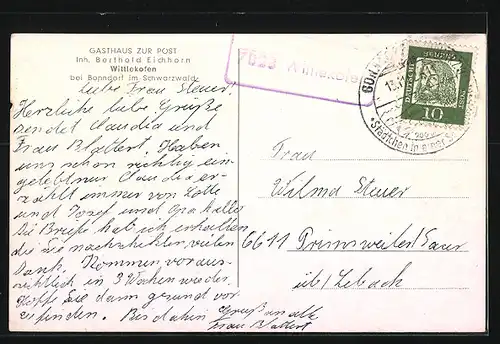 GASTHAUS ZUR POST
Inh. Berthold Eichhorn
Wittlekofen
bei Bonndorf im Schwarzwald
Liebe Frau Steuer!
Herzliche liebe Grüße
sendet Claudia und
Frau Blattert. Haben
uns schon richtig ein-
gelebt nur Claudia er-
zählt immer von Lotte
und Josef und Opa
die Briefe hab ich erhalten
die Sie nachschickten vielen
Dank. Kommen voraus-
sichtlich in 3 Wochen wieder.
Hoffe Sie dann gesund vor-
zufinden. Bis dahin Gruß an alle
Frau Blattert
Wittlekofen
10
Frau
Wilma Steuer
6611 Primsweiler/Saar
üb/Lebach